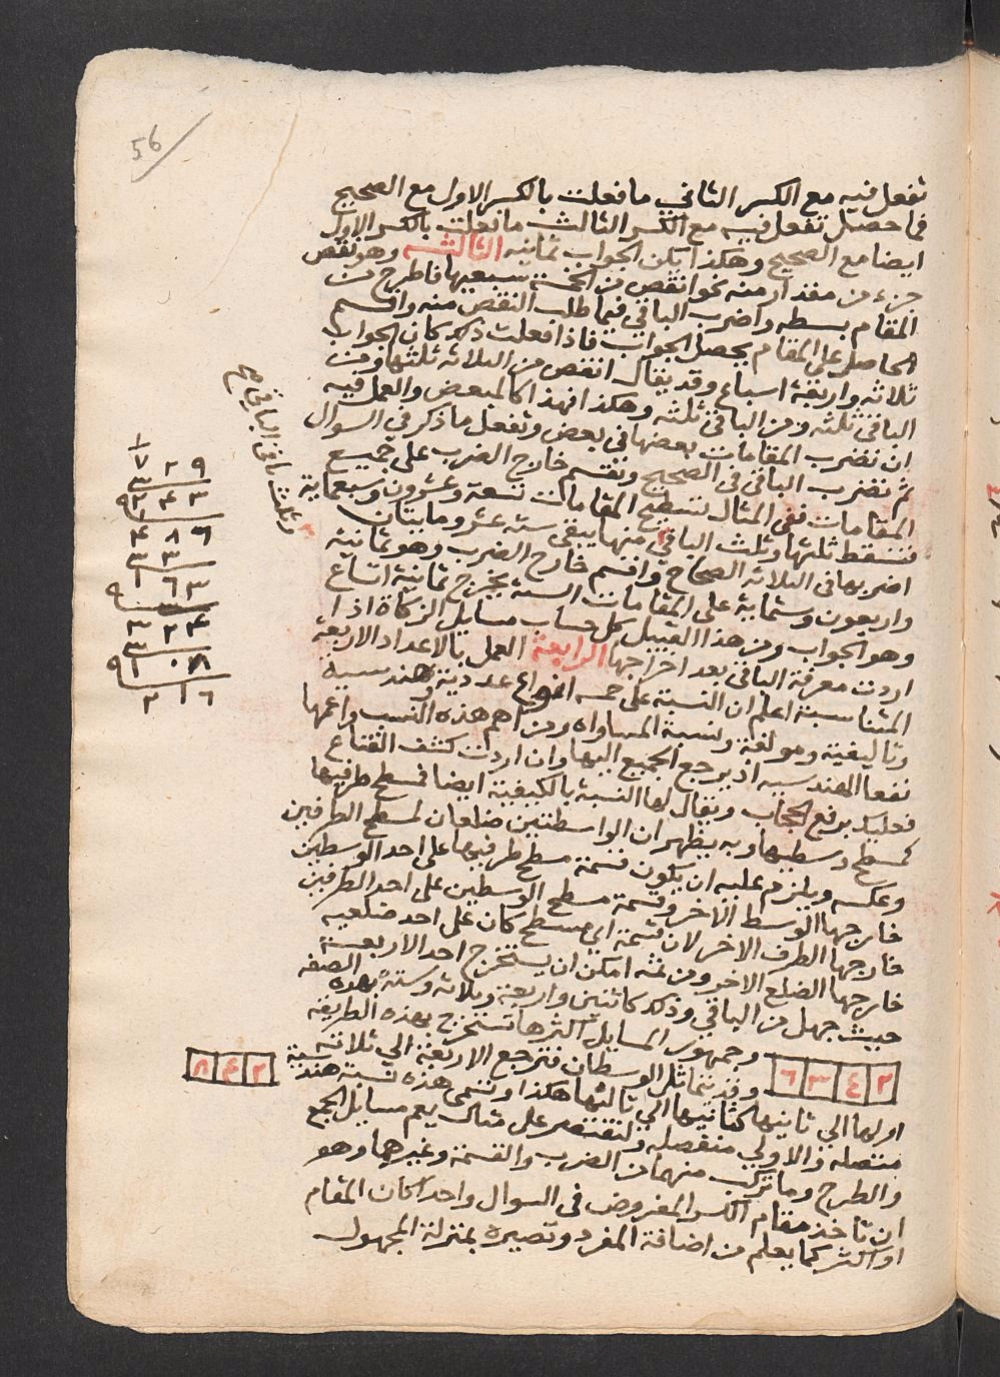 56
تفعل فيه مع الكسر الثاني ما فعلت بالكسر الاول مع الصحيح
فما حصل تفعل فيه مع الكسر الثالث ما فعلت بالكسر الاول
ايضا مع الصحيح وهكذا يكن الجواب ثمانيه الثالثه وهو نقص
جزء من مقدار منه نحو انقص من الخمسة سبعيها فاطرح من
المقام بسطه واضرب الباقي فيما طلب النقص منه واقسم
الحاصل على المقام يحصل الجواب فاذا فعلت ذلك كان الجواب
ثلاثه واربعة اسباع وقد يقال انقص من الثلاثه ثلثها ومن
الباقي ثلثه ومن الباقي ثلثه وهكذا فهذا كالمبعض والعمل فيه
ان تضرب المقامات بعضها في بعض وتفعل ما ذكر في السوال
ثم تضرب الباقي في الصحيح وتقسم خارج الضرب على جميع
المقامات ففي المثال تسطيح المقامات تسعة وعشرون وسبعماية
فتسقط ثلثها وثلث الباقي منها يبقى ستة عشر ومايتان
اضربها في الثلاثه الصحاح واقسم خارج الضرب وهو ثمانية
واربعون وستماية على المقامات الستة يخرج ثمانية اتساع
وهو الجواب ومن هذا القبيل كل حساب مسايل الزكاة اذا
اردت معرفة الباقي بعد اخراجها الرابعة العمل بالاعداد الاربعة
المتناسبة اعلم ان النسبة على خمسه انواع عددية وهندسية
وتاليفية ومولفة ونسبة المساواه ومن اهم هذه النسب واعمها
نفعا الهندسيه اذ يرجع الجميع اليها وان اردت كشف القناع
فعليك برفع الحجاب ويقال لها النسبة بالكيفية ايضا فمسطح طرفيها
كمسطح وسطيها وبه يظهر ان الواسطتين ضلعان لمسطح الطرفين
وعكسه ويلزم عليه ان يكون قسمة مسطح طرفيها على احد الوسطين
خارجها الوسط الاخر وقسمة مسطح الوسطين على احد الطرفين
خارجها الطرف الاخر لان قسمة اي مسطح كان على احد ضلعيه
خارجها الضلع الاخر ومن ثمه امكن ان يستخرج احد الاربعة
حيث جهل من الباقي وذلك كاثنين واربعة وثلاثه وستة بهذه الصفه
٢ ٤ ٣ ٦ وجمهور المسايل اكثرها تستخرج بهذه الطريقة
وقد يتماثل الوسطان فترجع الاربعة الى ثلاثه نسبة
اولها الى ثانيها كثانيها الى ثالثها هكذا وتسمى هذه نسبة هندسية ٢ ٤ ٨
متصله والاولى منفصله ولنقتصر على مثال يعم مسايل الجمع
والطرح وما تركب منهما من الضرب والقسمة وغيرهما وهو
ان تاخذ مقام الكسر المفروض في السوال واحدا كان المقام
او اكثر كما يعلم من اضافة المفرد وتصيره بمنزلة المجهول
وثلث باقي الباقي صح